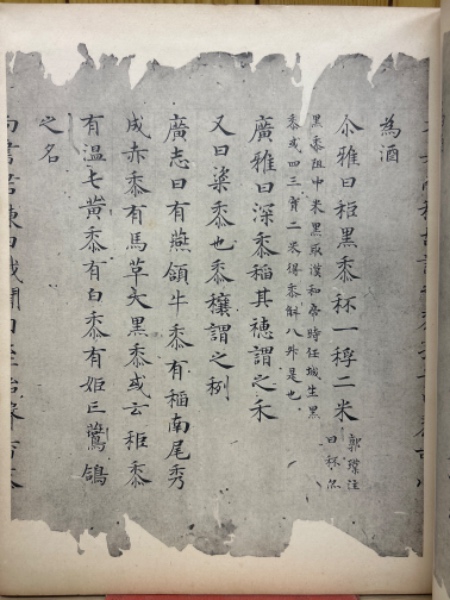 為酒
尒雅曰秬黑黍秠一稃二米
郭璞注
曰秠亦
黑黍中米黑漢和帝時任城生黑
黍或四三實二米得黍斛八斗是也
廣雅曰深黍稻其穗謂之禾
又曰粱黍也黍穰謂之䅀
廣志曰有燕頷牛黍有稻南尾秀
成赤黍有馬草大黑黍或云秬黍
有温七黄黍有白黍有姬亡鶩鴿
之名